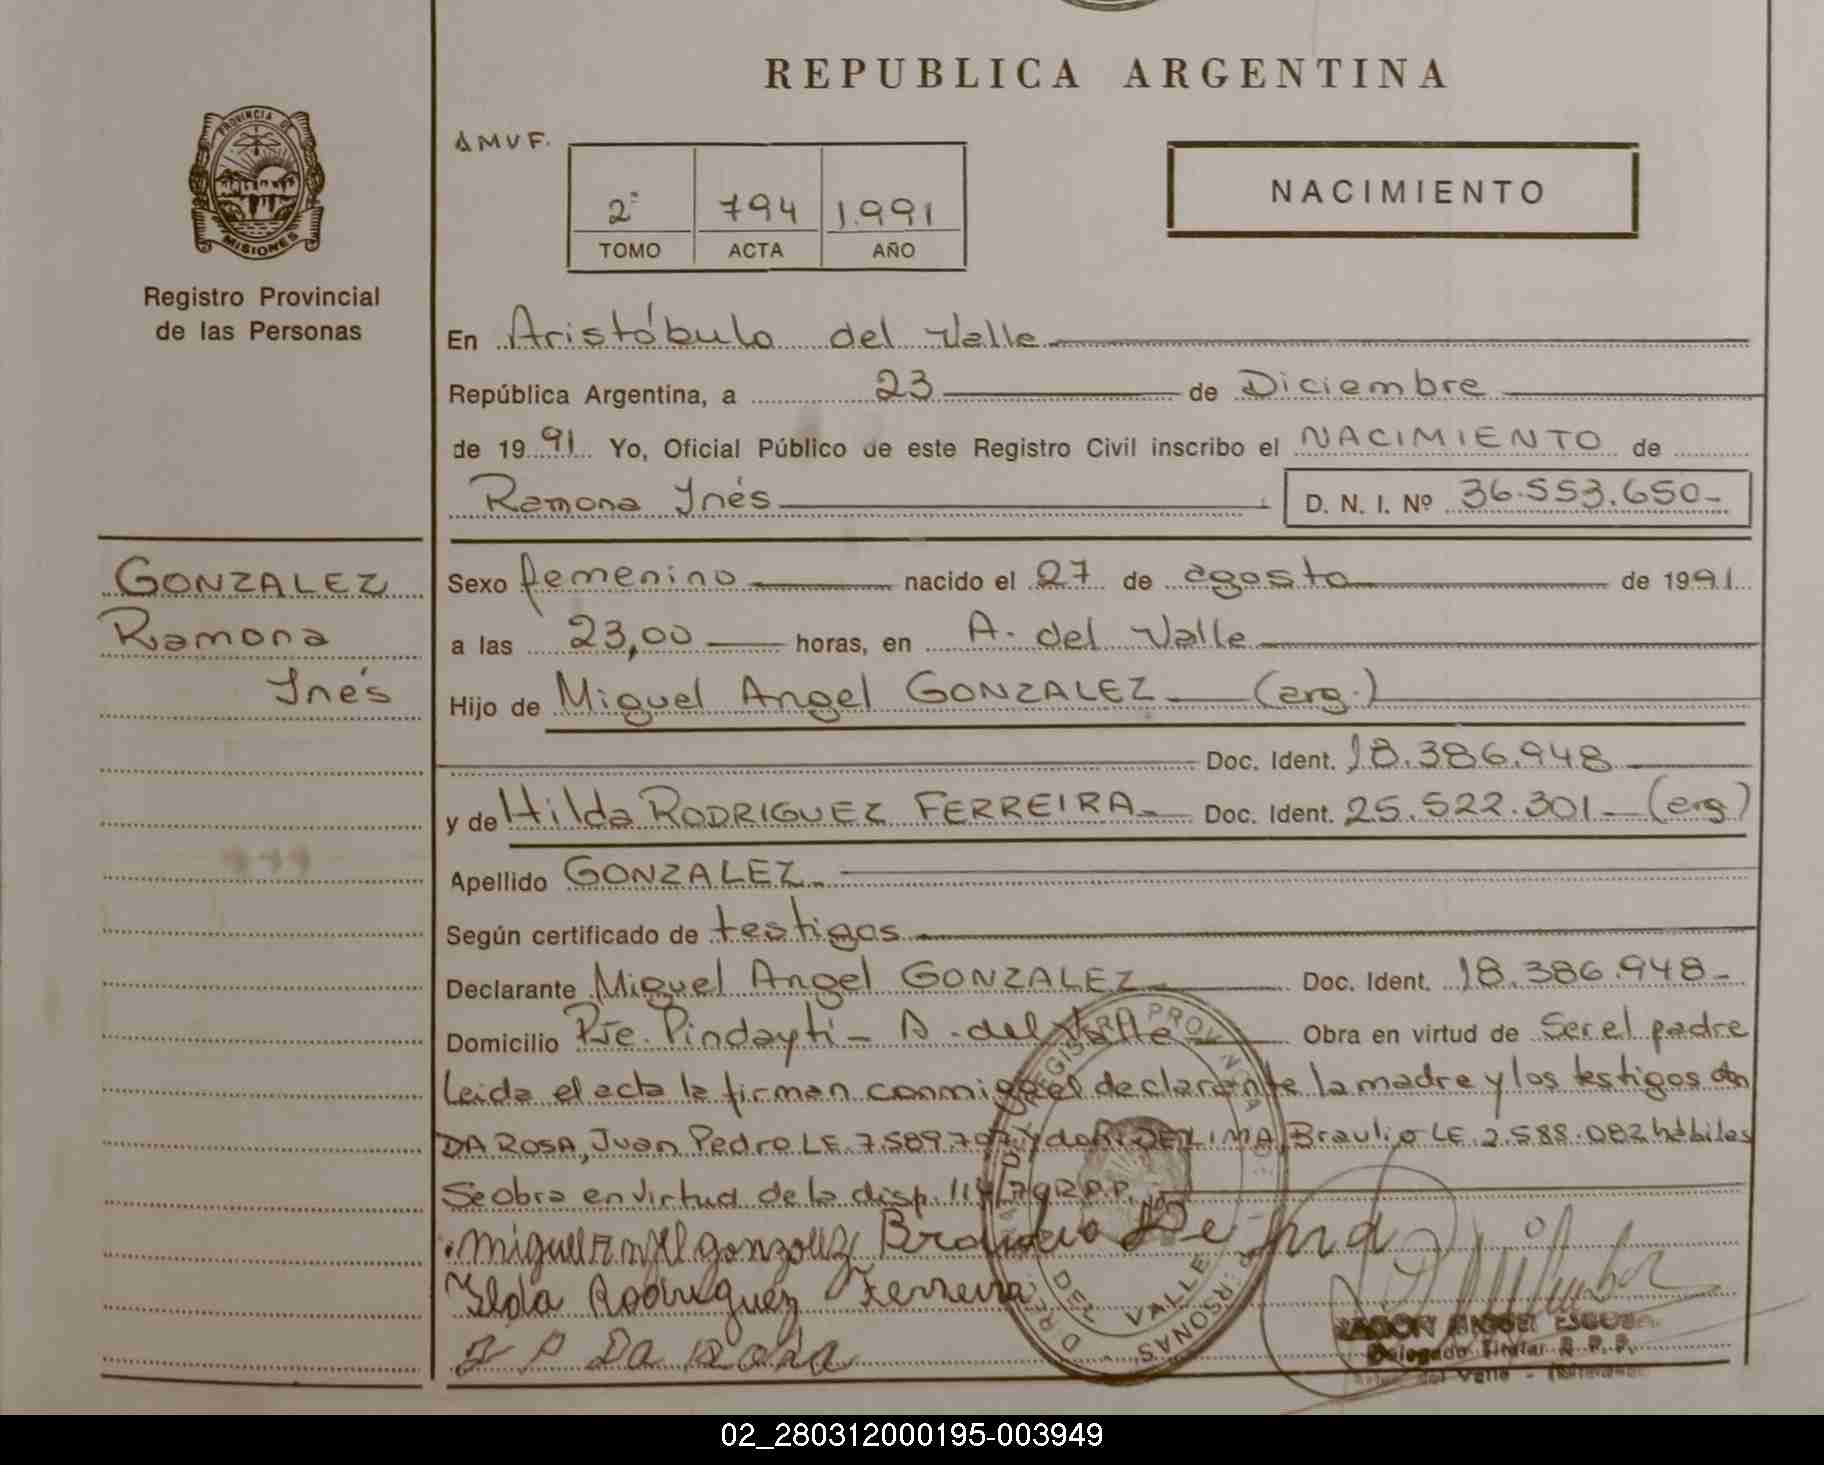 REPUBLICA ARGENTINA
PROVINCIA DE
MISIONES
Registro Provincial
de las Personas
AMVF.
2º 794 1.991
TOMO ACTA AÑO
NACIMIENTO
En Aristóbulo del Valle
República Argentina, a 23 de Diciembre
de 1991 Yo, Oficial Público de este Registro Civil inscribo el NACIMIENTO de
Ramona Inés D. N. I. Nº 36.553.650-
GONZALEZ
Ramona
Inés
Sexo femenino nacido el 27 de agosto de 1991
a las 23,00 horas, en A. del Valle
Hijo de Miguel Angel GONZALEZ (arg.)
Doc. Ident. 18.386.948
y de Hilda RODRIGUEZ FERREIRA Doc. Ident. 25.522.301 (arg)
Apellido GONZALEZ
Según certificado de testigos
Declarante Miguel Angel GONZALEZ Doc. Ident. 18.386.948-
Domicilio Pje. Pindaytí - A. del Valle Obra en virtud de Ser el padre
Leida el acta la firman conmigo el declarante la madre y los testigos
DA ROSA, Juan Pedro LE 7.589.797 y DE LIMA, Braulio LE 2.588.082 hábiles
Se obra en virtud de la disp. 114/79 R.P.P.
miguel Angel gonzalez Braulio De lima
Ilda Rodriguez Ferreira
J P Da Rosa
DEL VALLE
RAMON MIGUEL ESCOBAR
Delegado Titular R.P.P.
del Valle - (Misiones)
02_280312000195-003949